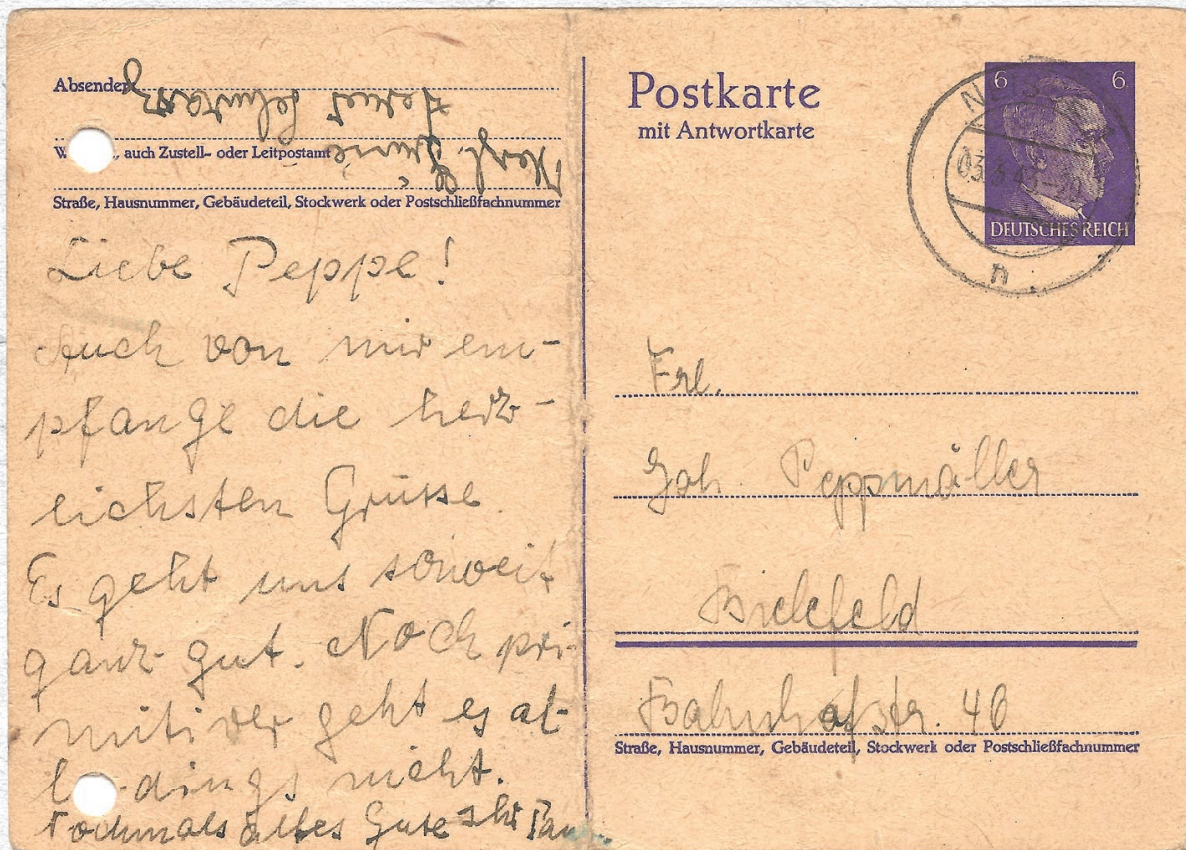 Absender
auch Zustell- oder Leitpostamt
Straße, Hausnummer, Gebäudeteil, Stockwerk oder Postschließfachnummer
Herzl. Grüsse
Liebe Peppe!
Auch von mir em-
pfange die herz-
lichsten Grüsse.
Es geht uns soweit
ganz gut. Noch pri-
mitiver geht es al-
dings nicht.
Nochmals alles Gute Ihr
Postkarte
mit Antwortkarte
6 6
DEUTSCHES REICH
n
Frl.
Joh. Peppmöller
Bielefeld
Bahnhofstr. 46
Straße, Hausnummer, Gebäudeteil, Stockwerk oder Postschließfachnummer